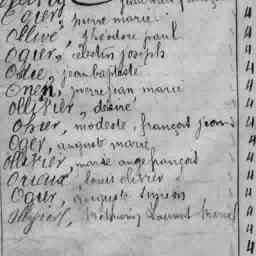 Ogier, pierre marie
Ollive, théodore paul
Ogier, célestin joseph
Osee, jean baptiste
Onen, pierre jean marie
Ollivier, désiré
Ohier, modeste, françois jean
Oger, auguste marie
Ollivier, marie ange françois
Orieux, louis olivier
Ogier, auguste simon
Mathurin Laurent Marie